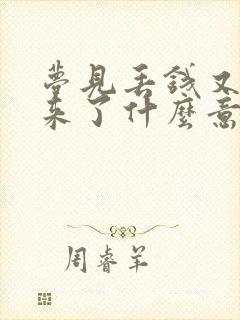 夢見丟錢又
来了什麼意
周睿羊